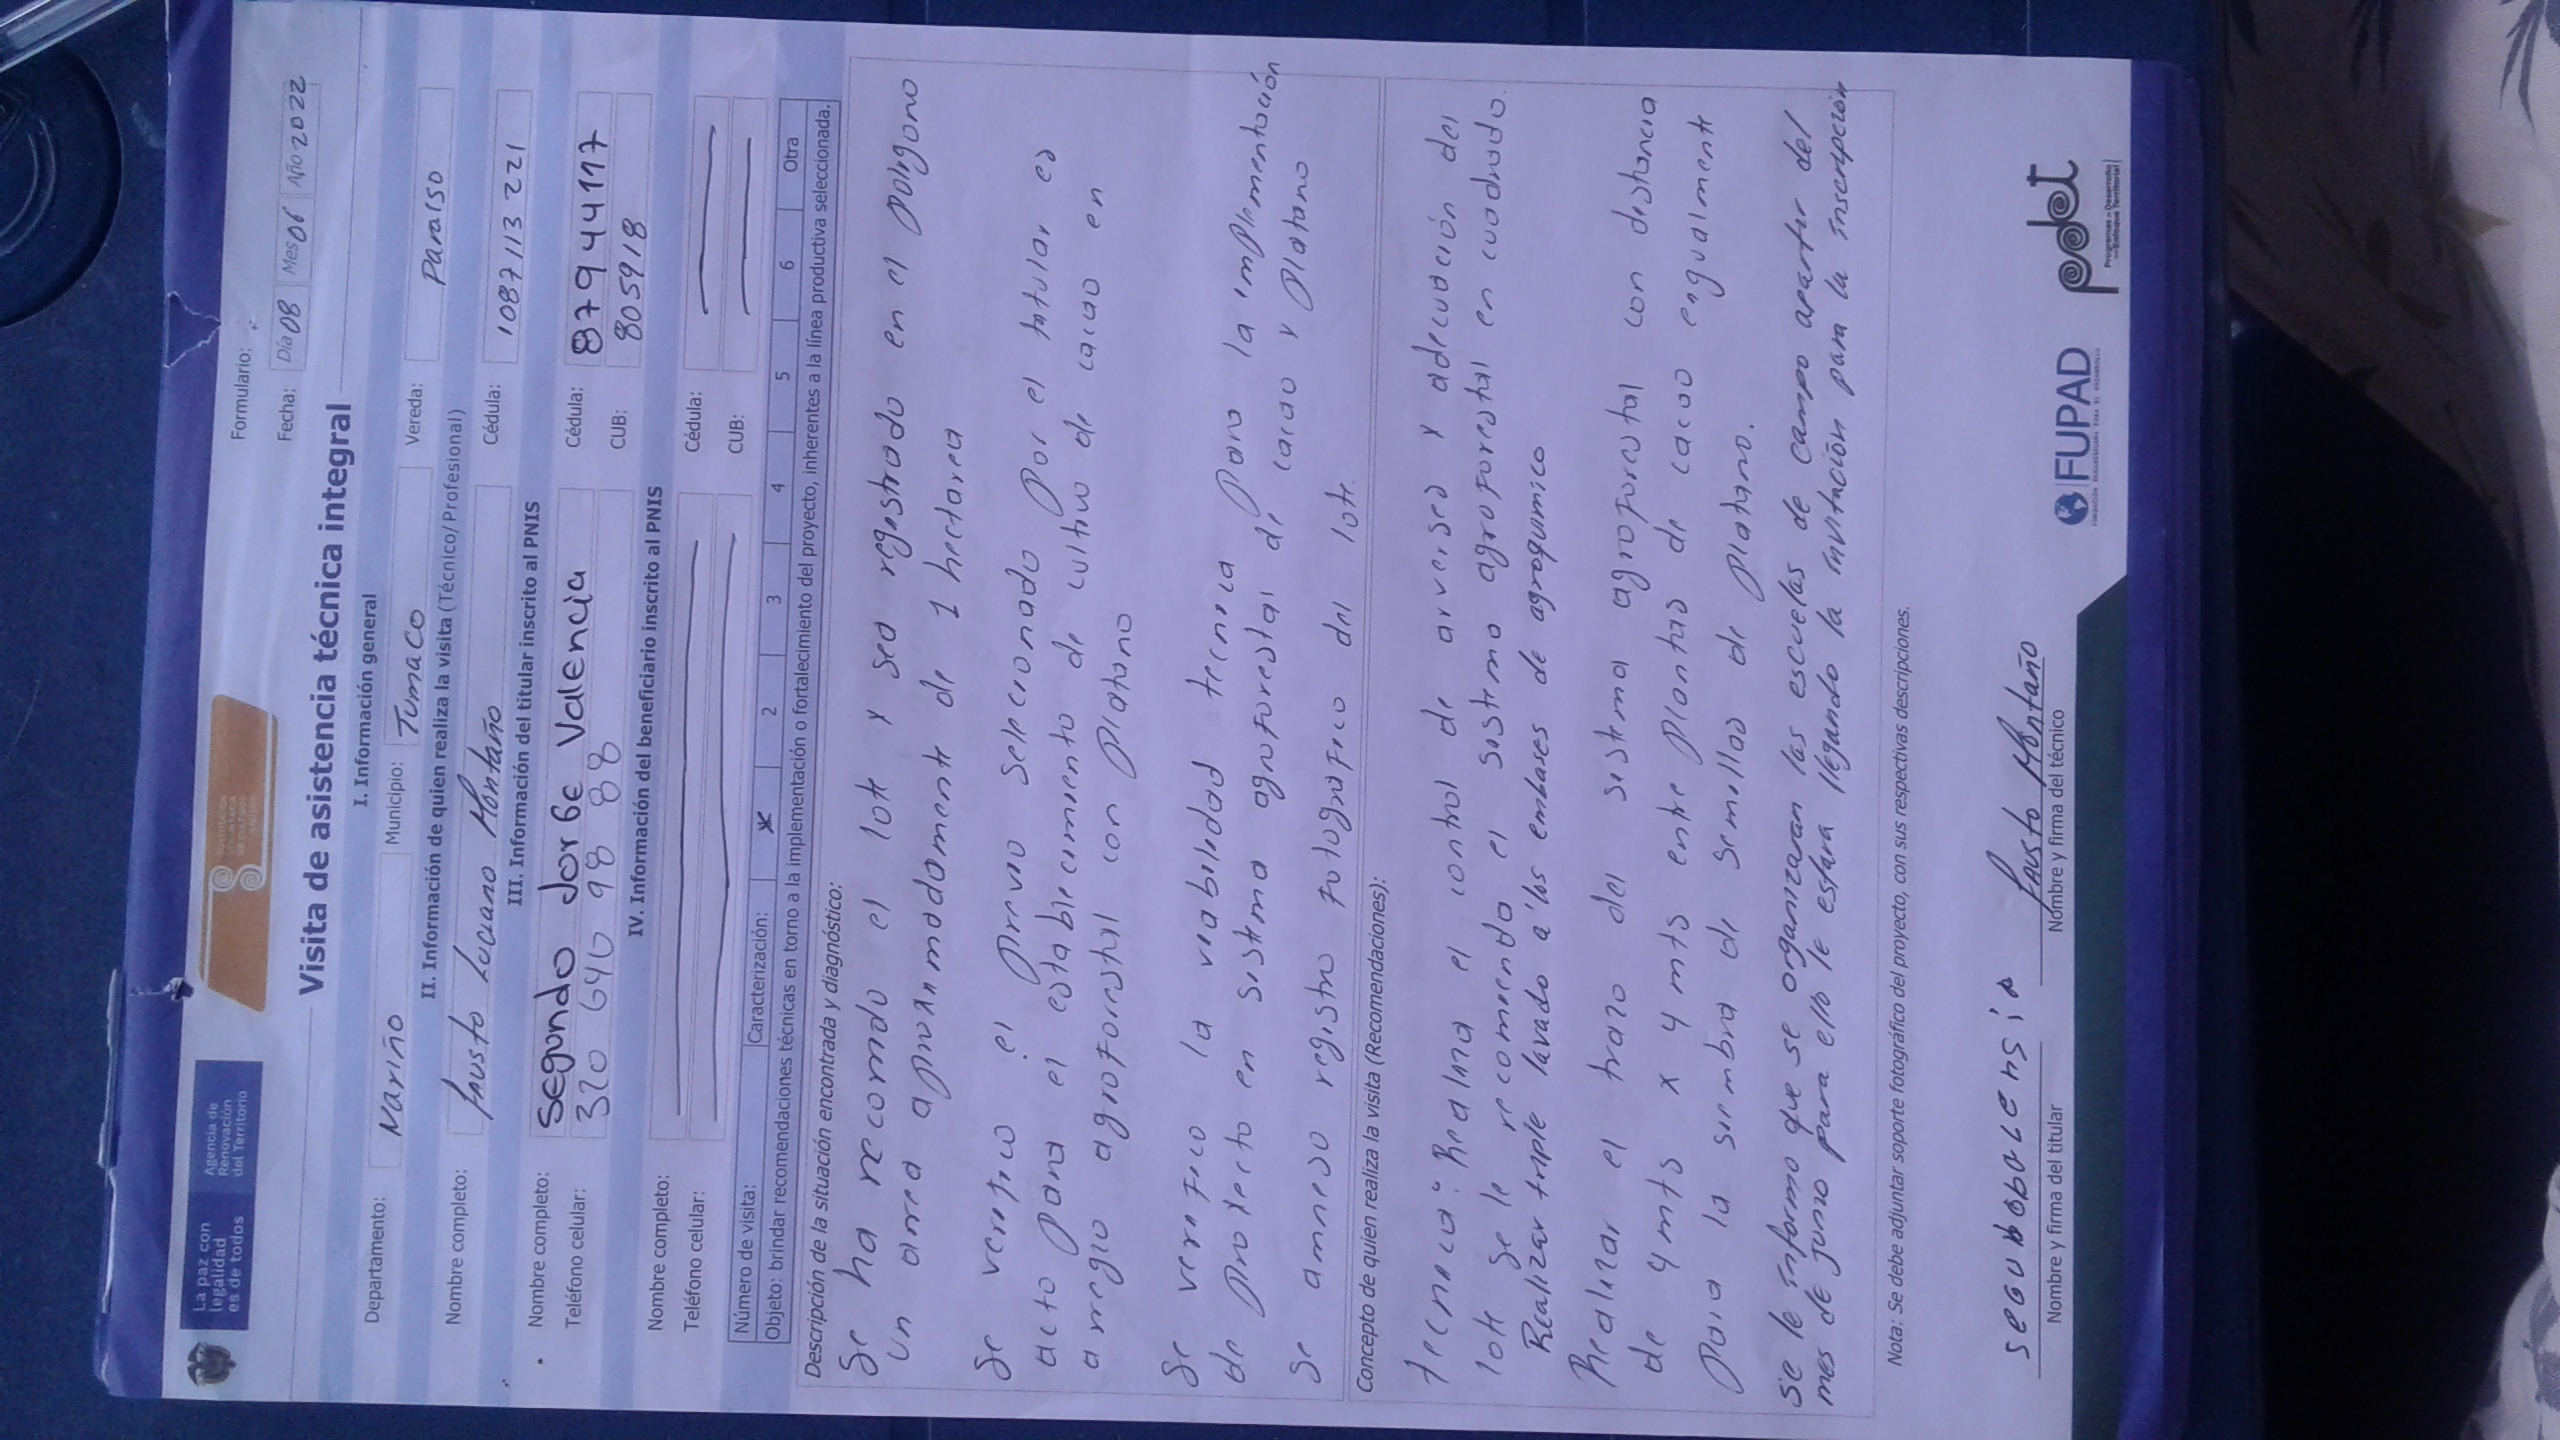 La paz con
legalidad
es de todos
Agencia de
Renovación
del Territorio
Formulario:
Fecha: Día 08 Mes 06 Año 2022
Visita de asistencia técnica integral
I. Información general
Departamento: Nariño Municipio: Tumaco Vereda: Paraiso
II. Información de quien realiza la visita (Técnico/Profesional)
Nombre completo: Fausto Lucano Montaño Cédula: 1087113221
III. Información del titular inscrito al PNIS
Nombre completo: Segundo Jorge Valencia Cédula: 87944117
Teléfono celular: 320 640 98 88 CUB: 805918
IV. Información del beneficiario inscrito al PNIS
Nombre completo: Cédula:
Teléfono celular: CUB:
Número de visita: Caracterización: X 2 3 4 5 6 Otra
Objeto: brindar recomendaciones técnicas en torno a la implementación o fortalecimiento del proyecto, inherentes a la línea productiva seleccionada.
Descripción de la situación encontrada y diagnóstico:
Se ha recorrido el lote y sea registrado en el poligono
un area aproximadamente de 1 hectarea
Se verifico el previo selecionado por el titular es
acto para el establecimiento de cultivo de cacao en
arreglo agroforestal con platano
Se verifico la viabilidad tecnica para la implementación
de proyecto en sistema agroforestal de cacao y platano
Se annexo registro fotografico del lote.
Concepto de quien realiza la visita (Recomendaciones):
tecnica: Realiza el control de arverses y adecuación del
lote se le recomienda el sistema agroforestal en cuadrado.
Realizar triple lavado a los embases de agroquimico
Realizar el trazo del sistema agroforestal con distancia
de 4 mts x 4 mts entre plantas de cacao engualmente
para la siembra de semillas de platano.
Se le informo que se organizaran las escuelas de campo apartir del
mes de junio para ello le estara llegando la invitación para la inscripción
Nota: Se debe adjuntar soporte fotográfico del proyecto, con sus respectivas descripciones.
Fausto Montaño
Nombre y firma del titular Nombre y firma del técnico
FUPAD
pdet